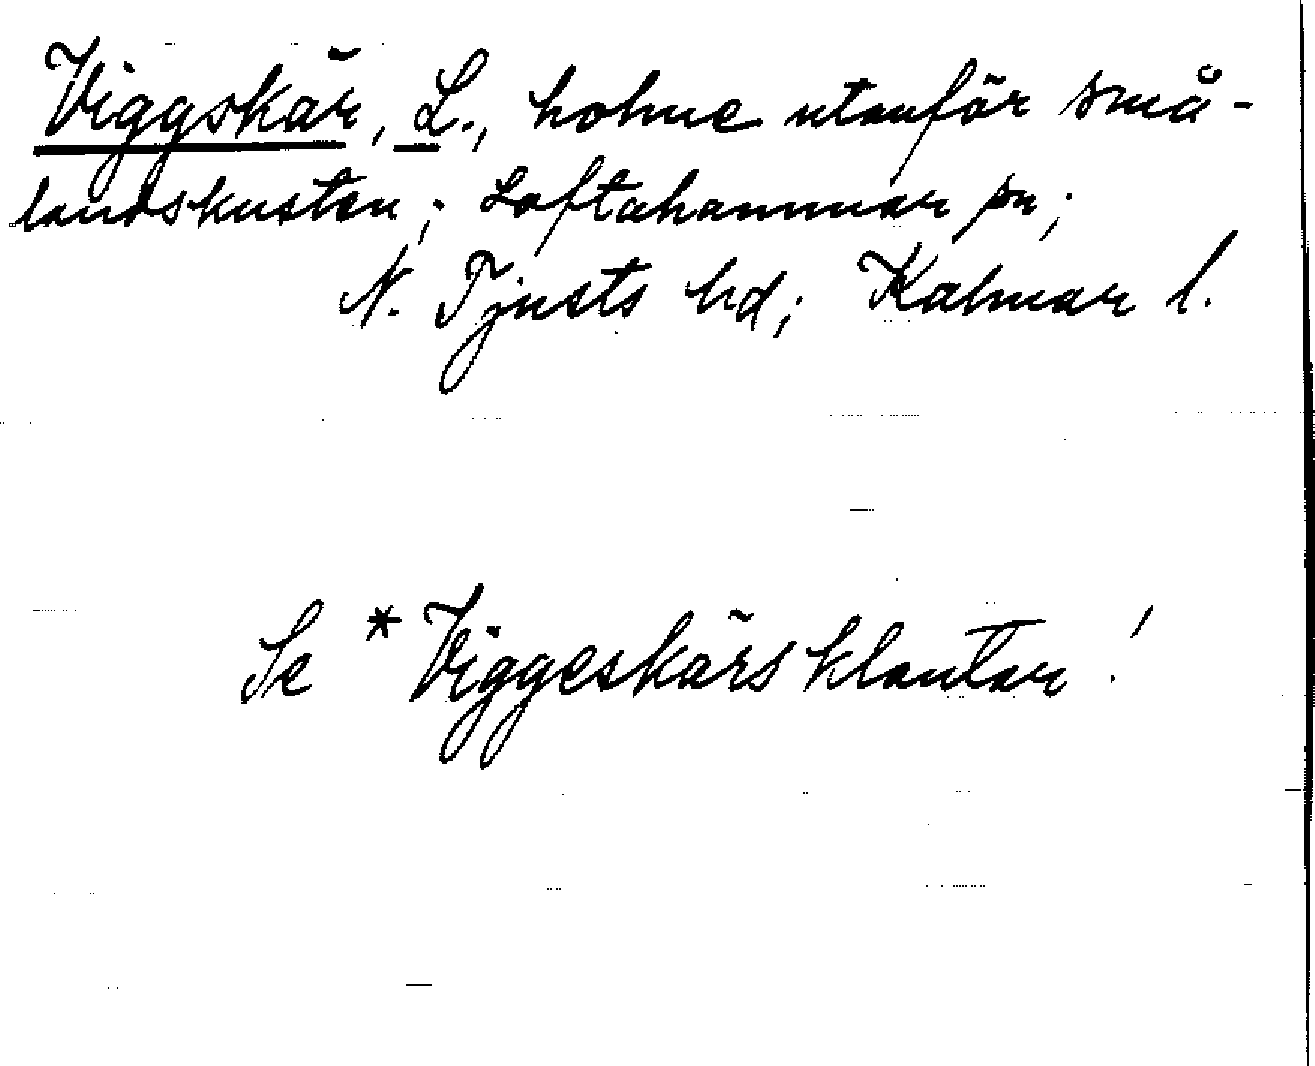 Viggskär, L., holme utanför små-
landskusten; Loftahammar sn;
N. Tjusts hd; Kalmar l.
Se *Viggeskärs klantar!